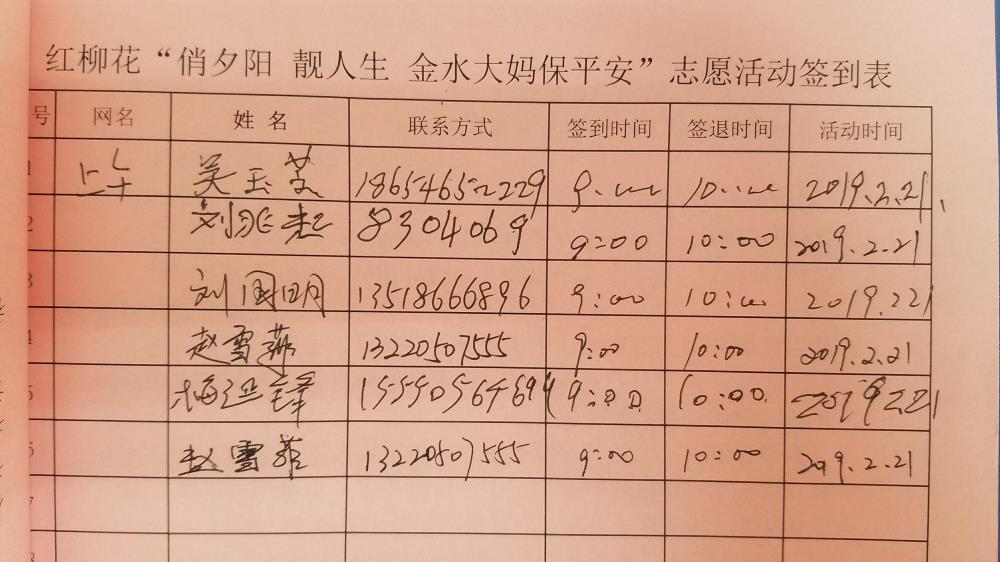 红柳花“俏夕阳 靓人生 金水大妈保平安”志愿活动签到表
号 网名 姓名 联系方式 签到时间 签退时间 活动时间
1 上午 吴玉芝 18654652229 9:00 10:00 2019.2.21.
2 刘兆起 8304069 9:00 10:00 2019.2.21
3 刘国明 13518666896 9:00 10:00 2019.2.21
4 赵雪燕 13220507555 9:00 10:00 2019.2.21
5 梅延锋 9:00 10:00 2019.2.21
6 赵雪 13220507555 9:00 10:00 2019.2.21
7
8